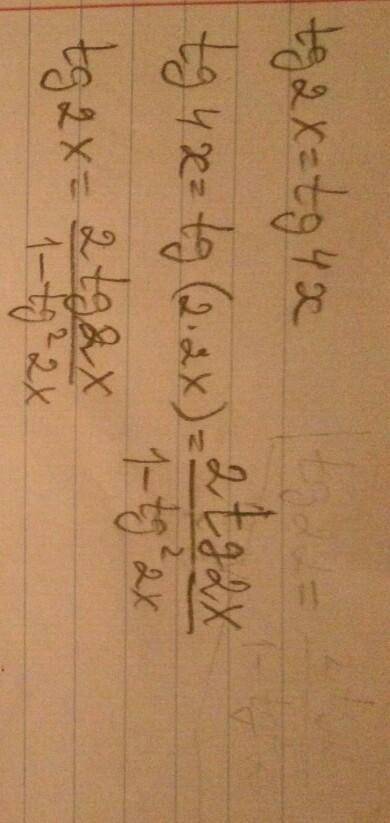 tg 2x = tg 4x
tg 4x = tg (2·2x) = 2 tg 2x / 1 - tg² 2x
tg 2x = 2 tg 2x / 1 - tg² 2x